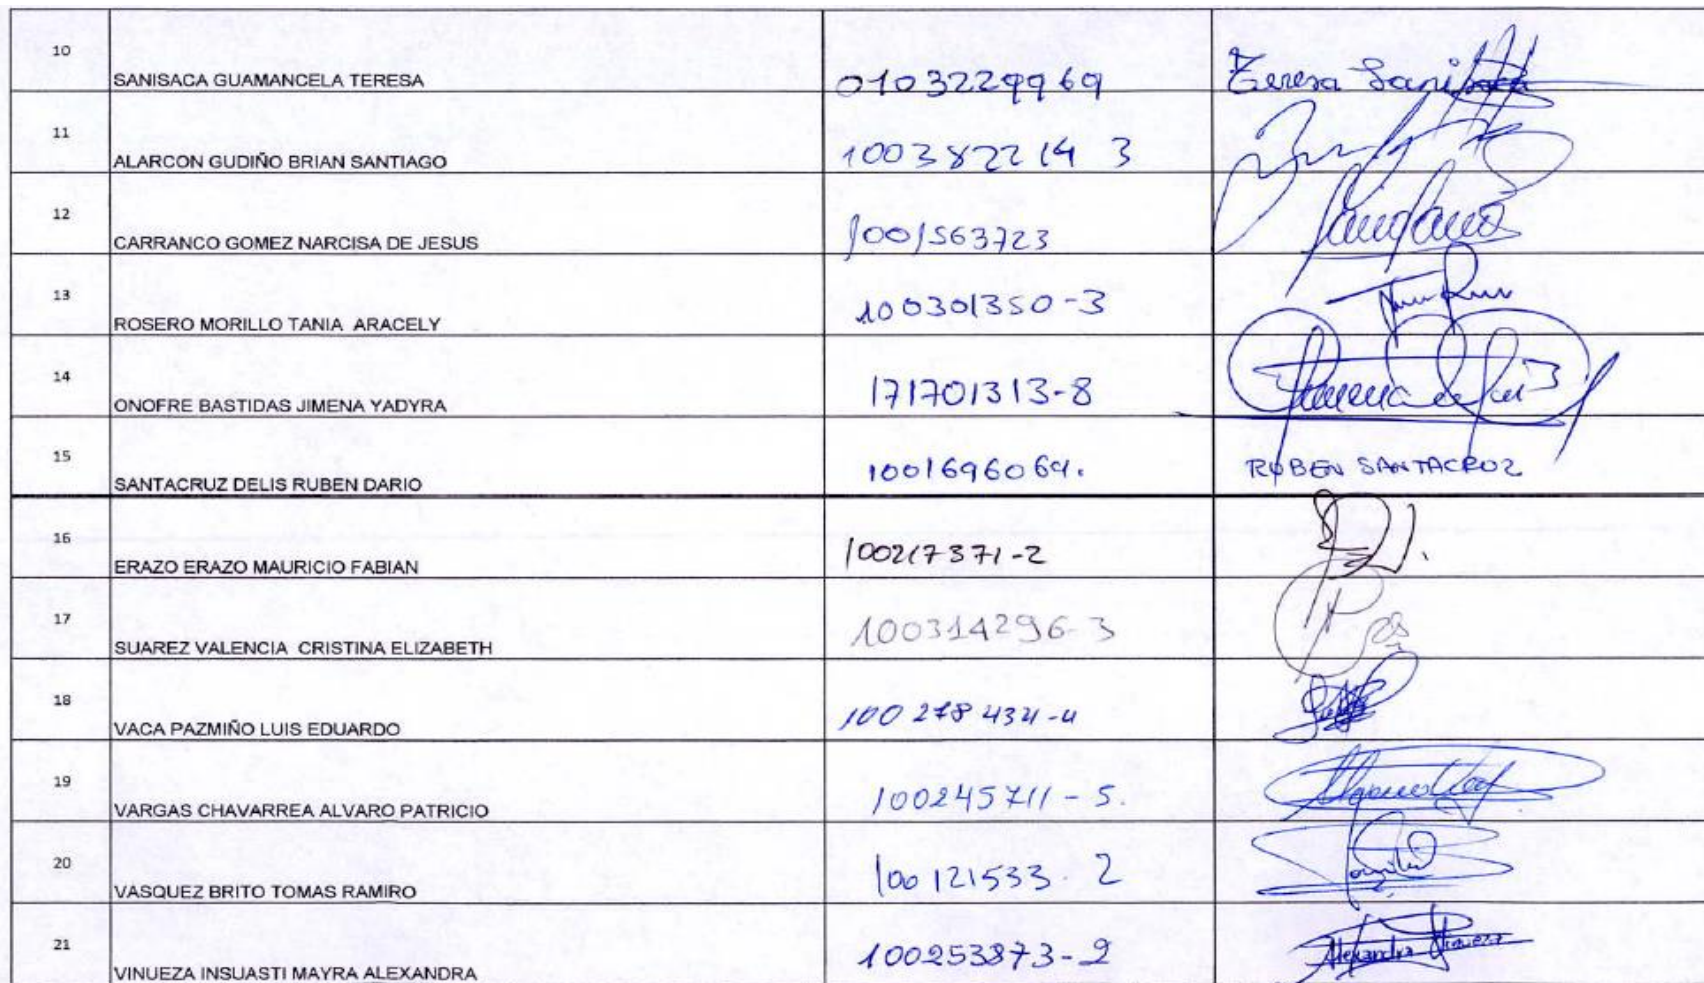 10 SANISACA GUAMANCELA TERESA 0103229969 Teresa Sanisaca
11 ALARCON GUDIÑO BRIAN SANTIAGO 100382214 3
12 CARRANCO GOMEZ NARCISA DE JESUS 1001563723
13 ROSERO MORILLO TANIA ARACELY 100301350-3
14 ONOFRE BASTIDAS JIMENA YADYRA 171701313-8
15 SANTACRUZ DELIS RUBEN DARIO 1001696069. RUBEN SANTACRUZ
16 ERAZO ERAZO MAURICIO FABIAN 100217371-2
17 SUAREZ VALENCIA CRISTINA ELIZABETH 100314296-3
18 VACA PAZMIÑO LUIS EDUARDO 100278434-4
19 VARGAS CHAVARREA ALVARO PATRICIO 100245711-5.
20 VASQUEZ BRITO TOMAS RAMIRO 100121533-2
21 VINUEZA INSUASTI MAYRA ALEXANDRA 100253873-2